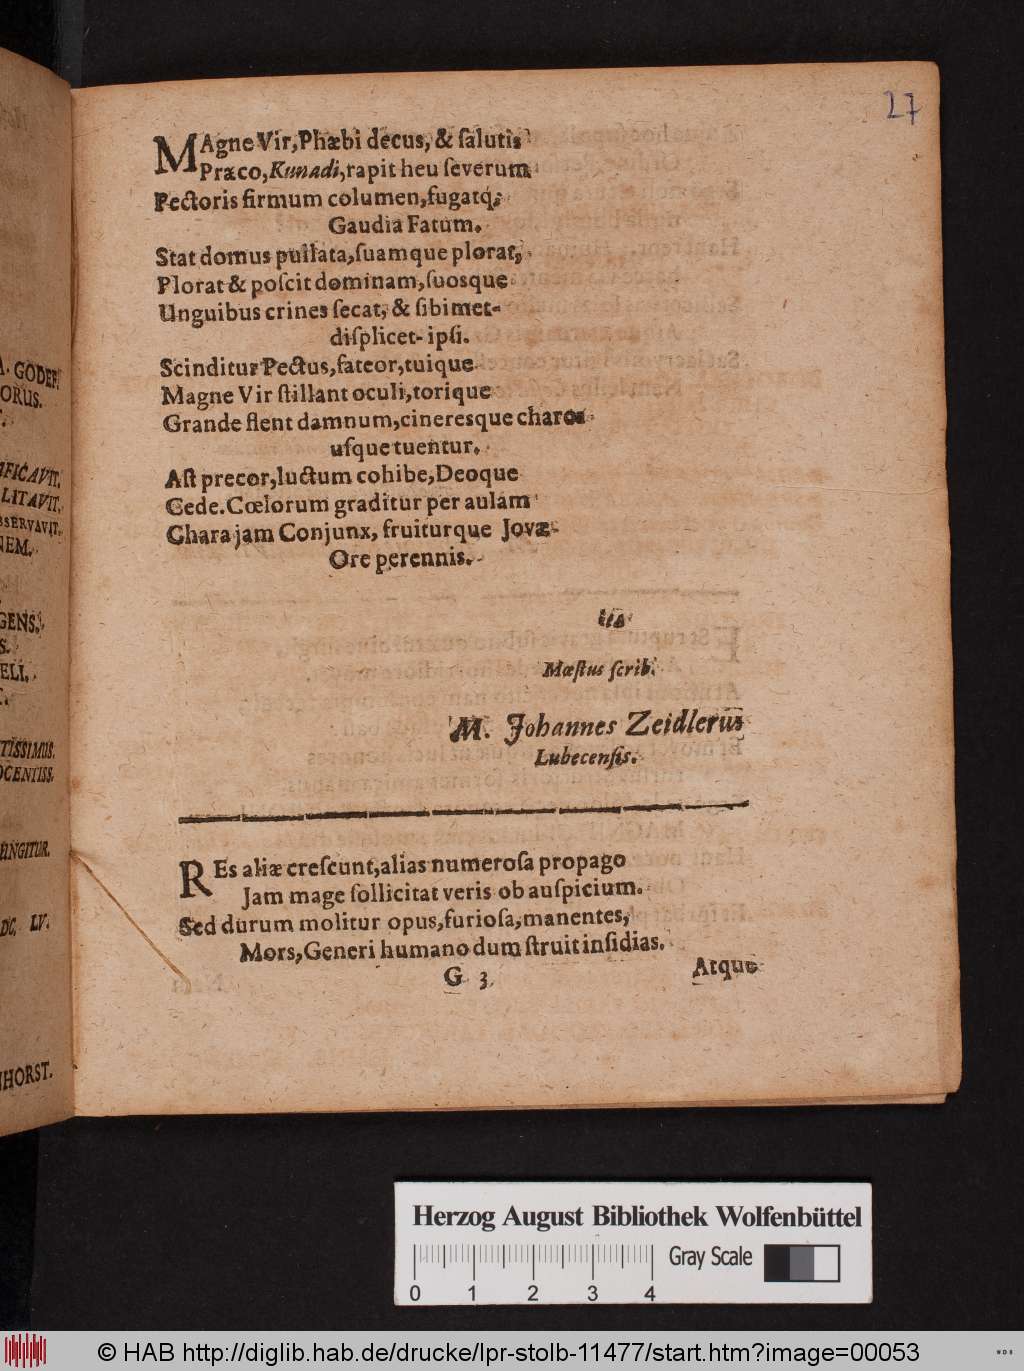 27
MAgne Vir, Phæbi decus, & ſalutis
Præco, Kunadi, rapit heu ſeverum
Pectoris firmum columen, fugatq́;
Gaudia Fatum.
Stat domus pullata, ſuamque plorat,
Plorat & poſcit dominam, ſuosque
Unguibus crines ſecat, & ſibimet-
diſplicet- ipſi.
Scinditur Pectus, fateor, tuique
Magne Vir ſtillant oculi, torique
Grande flent damnum, cineresque charos
uſque tuentur.
Aſt precor, luctum cohibe, Deoque
Cede. Cœlorum graditur per aulam
Chara jam Conjunx, fruiturque Jovæ
Ore perennis.
Mœſtus ſcrib.
M. Johannes Zeidlerus
Lubecenſis.
REs aliæ creſcunt, alias numeroſa propago
Jam mage ſollicitat veris ob auſpicium.
Sed durum molitur opus, furioſa, manentes,
Mors, Generi humano dum ſtruit inſidias.
G 3
Atque
GODEF.
ORUS.
IFICAVIT.
LITAVIT.
BSERVAVIT.
NEM.
GENS.
S.
ELI.
TISSIMUS.
OCENTISS.
UNGITUR.
DC. LV.
NHORST.
Herzog August Bibliothek Wolfenbüttel
Gray Scale
0 1 2 3 4
© HAB http://diglib.hab.de/drucke/lpr-stolb-11477/start.htm?image=00053